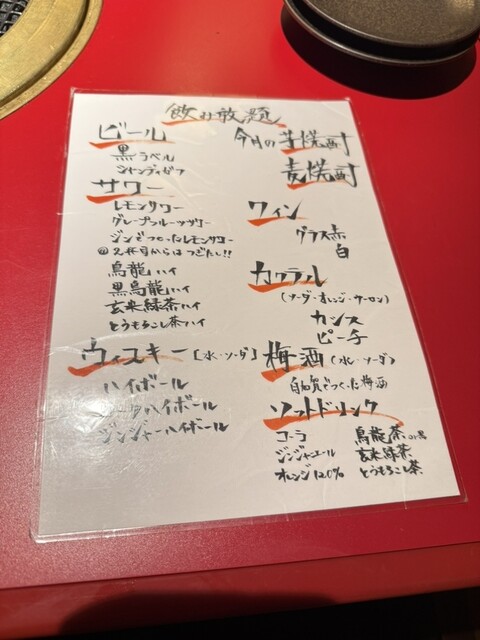 飲み放題
ビール
黒ラベル
シャンディガフ
サワー
レモンサワー
グレープフルーツサワー
ジンでつくったレモンサワー
2杯目からはつぎたし!!
烏龍ハイ
黒烏龍ハイ
玄米緑茶ハイ
とうもろこし茶ハイ
ウィスキー [水・ソーダ]
ハイボール
ハイボール
ジンジャーハイボール
今月の芋焼酎
麦焼酎
ワイン
グラス赤
白
カクテル
(ソーダ・オレンジ・ウーロン)
カシス
ピーチ
梅酒 (水・ソーダ)
自知賀でつくった梅酒
ソフトドリンク
コーラ
ジンジャエール
オレンジ120%
烏龍茶 or 黒
玄米緑茶
とうもろこし茶